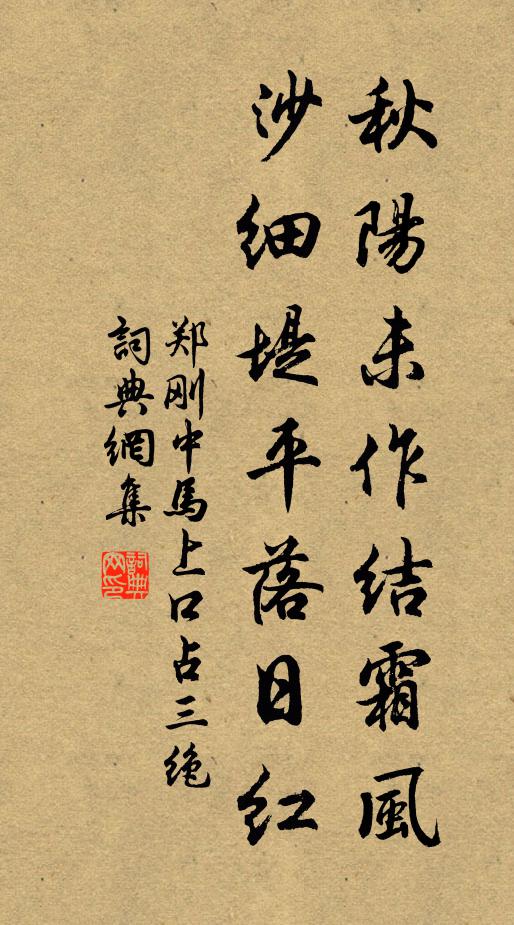 秋陽未作結霜風
沙細堤平落日紅
郑刚中馬上口占三绝
詞典網集
詞典網印